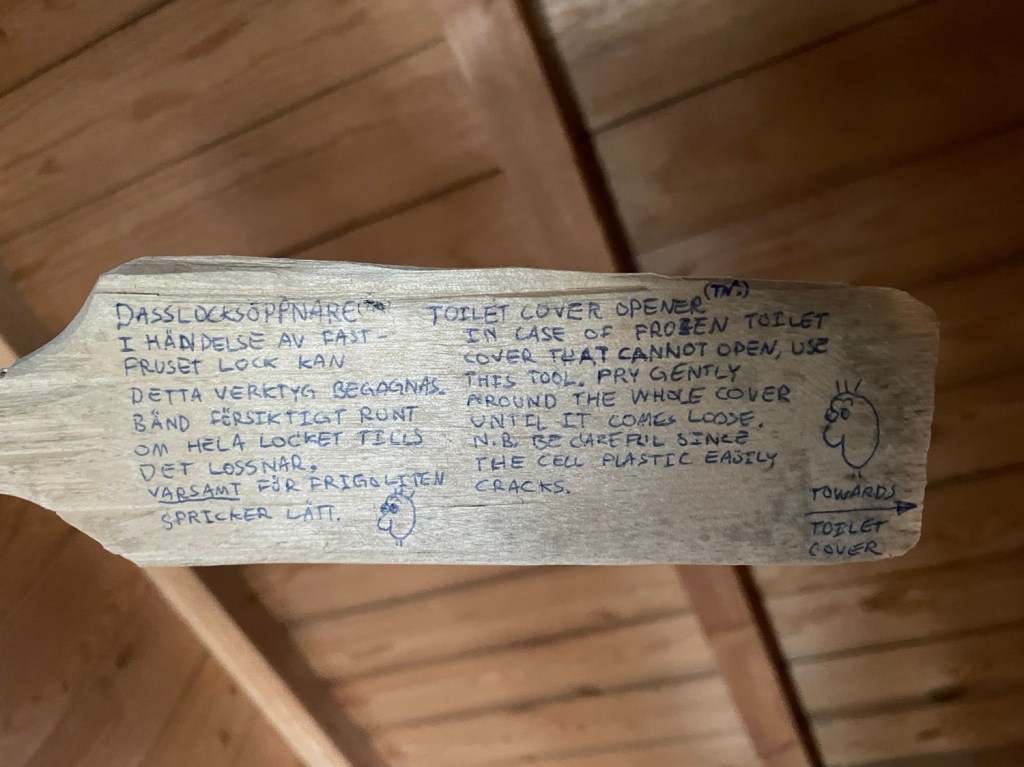 DASSLOCKSÖPPNARE (TM)
I HÄNDELSE AV FAST-
FRUSET LOCK KAN
DETTA VERKTYG BEGAGNAS.
BÄND FÖRSIKTIGT RUNT
OM HELA LOCKET TILLS
DET LOSSNAR.
VARSAMT FÖR FRIGOLITEN
SPRICKER LÄTT.
TOILET COVER OPENER (TM)
IN CASE OF FROZEN TOILET
COVER THAT CANNOT OPEN, USE
THIS TOOL. PRY GENTLY
AROUND THE WHOLE COVER
UNTIL IT COMES LOOSE.
N.B. BE CAREFUL SINCE
THE CELL PLASTIC EASILY
CRACKS.
TOWARDS
TOILET
COVER